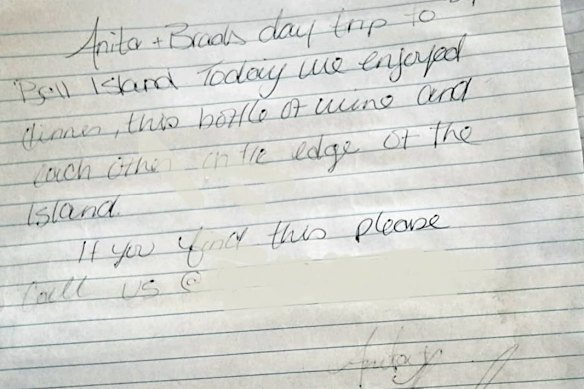 Anita + Brads day trip to
Bell Island Today we enjoyed
dinner, this bottle of wine and
each other on the edge of the
Island.
If you find this please
Call us @
Anita